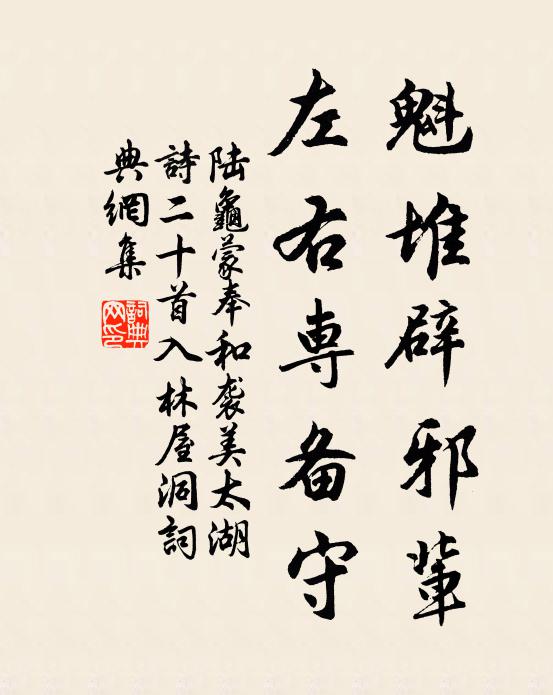 魁堆辟邪輩
左右専备守
陆龜蒙奉和袭美太湖
詩二十首入林屋洞詞
典網集
詞典网印